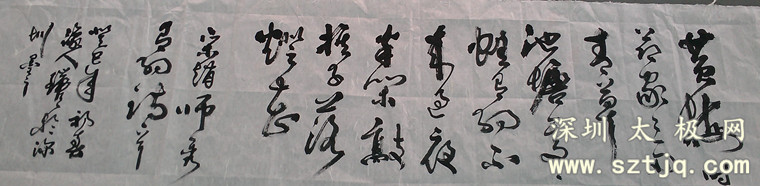 黄梅时
节家家雨
青草
池塘处处
蛙有约不
来过夜
半闲敲
棋子落
燈花
宋赵师秀
有约诗
癸巳年初春
於深
圳
深圳太极网
www.sztjq.com